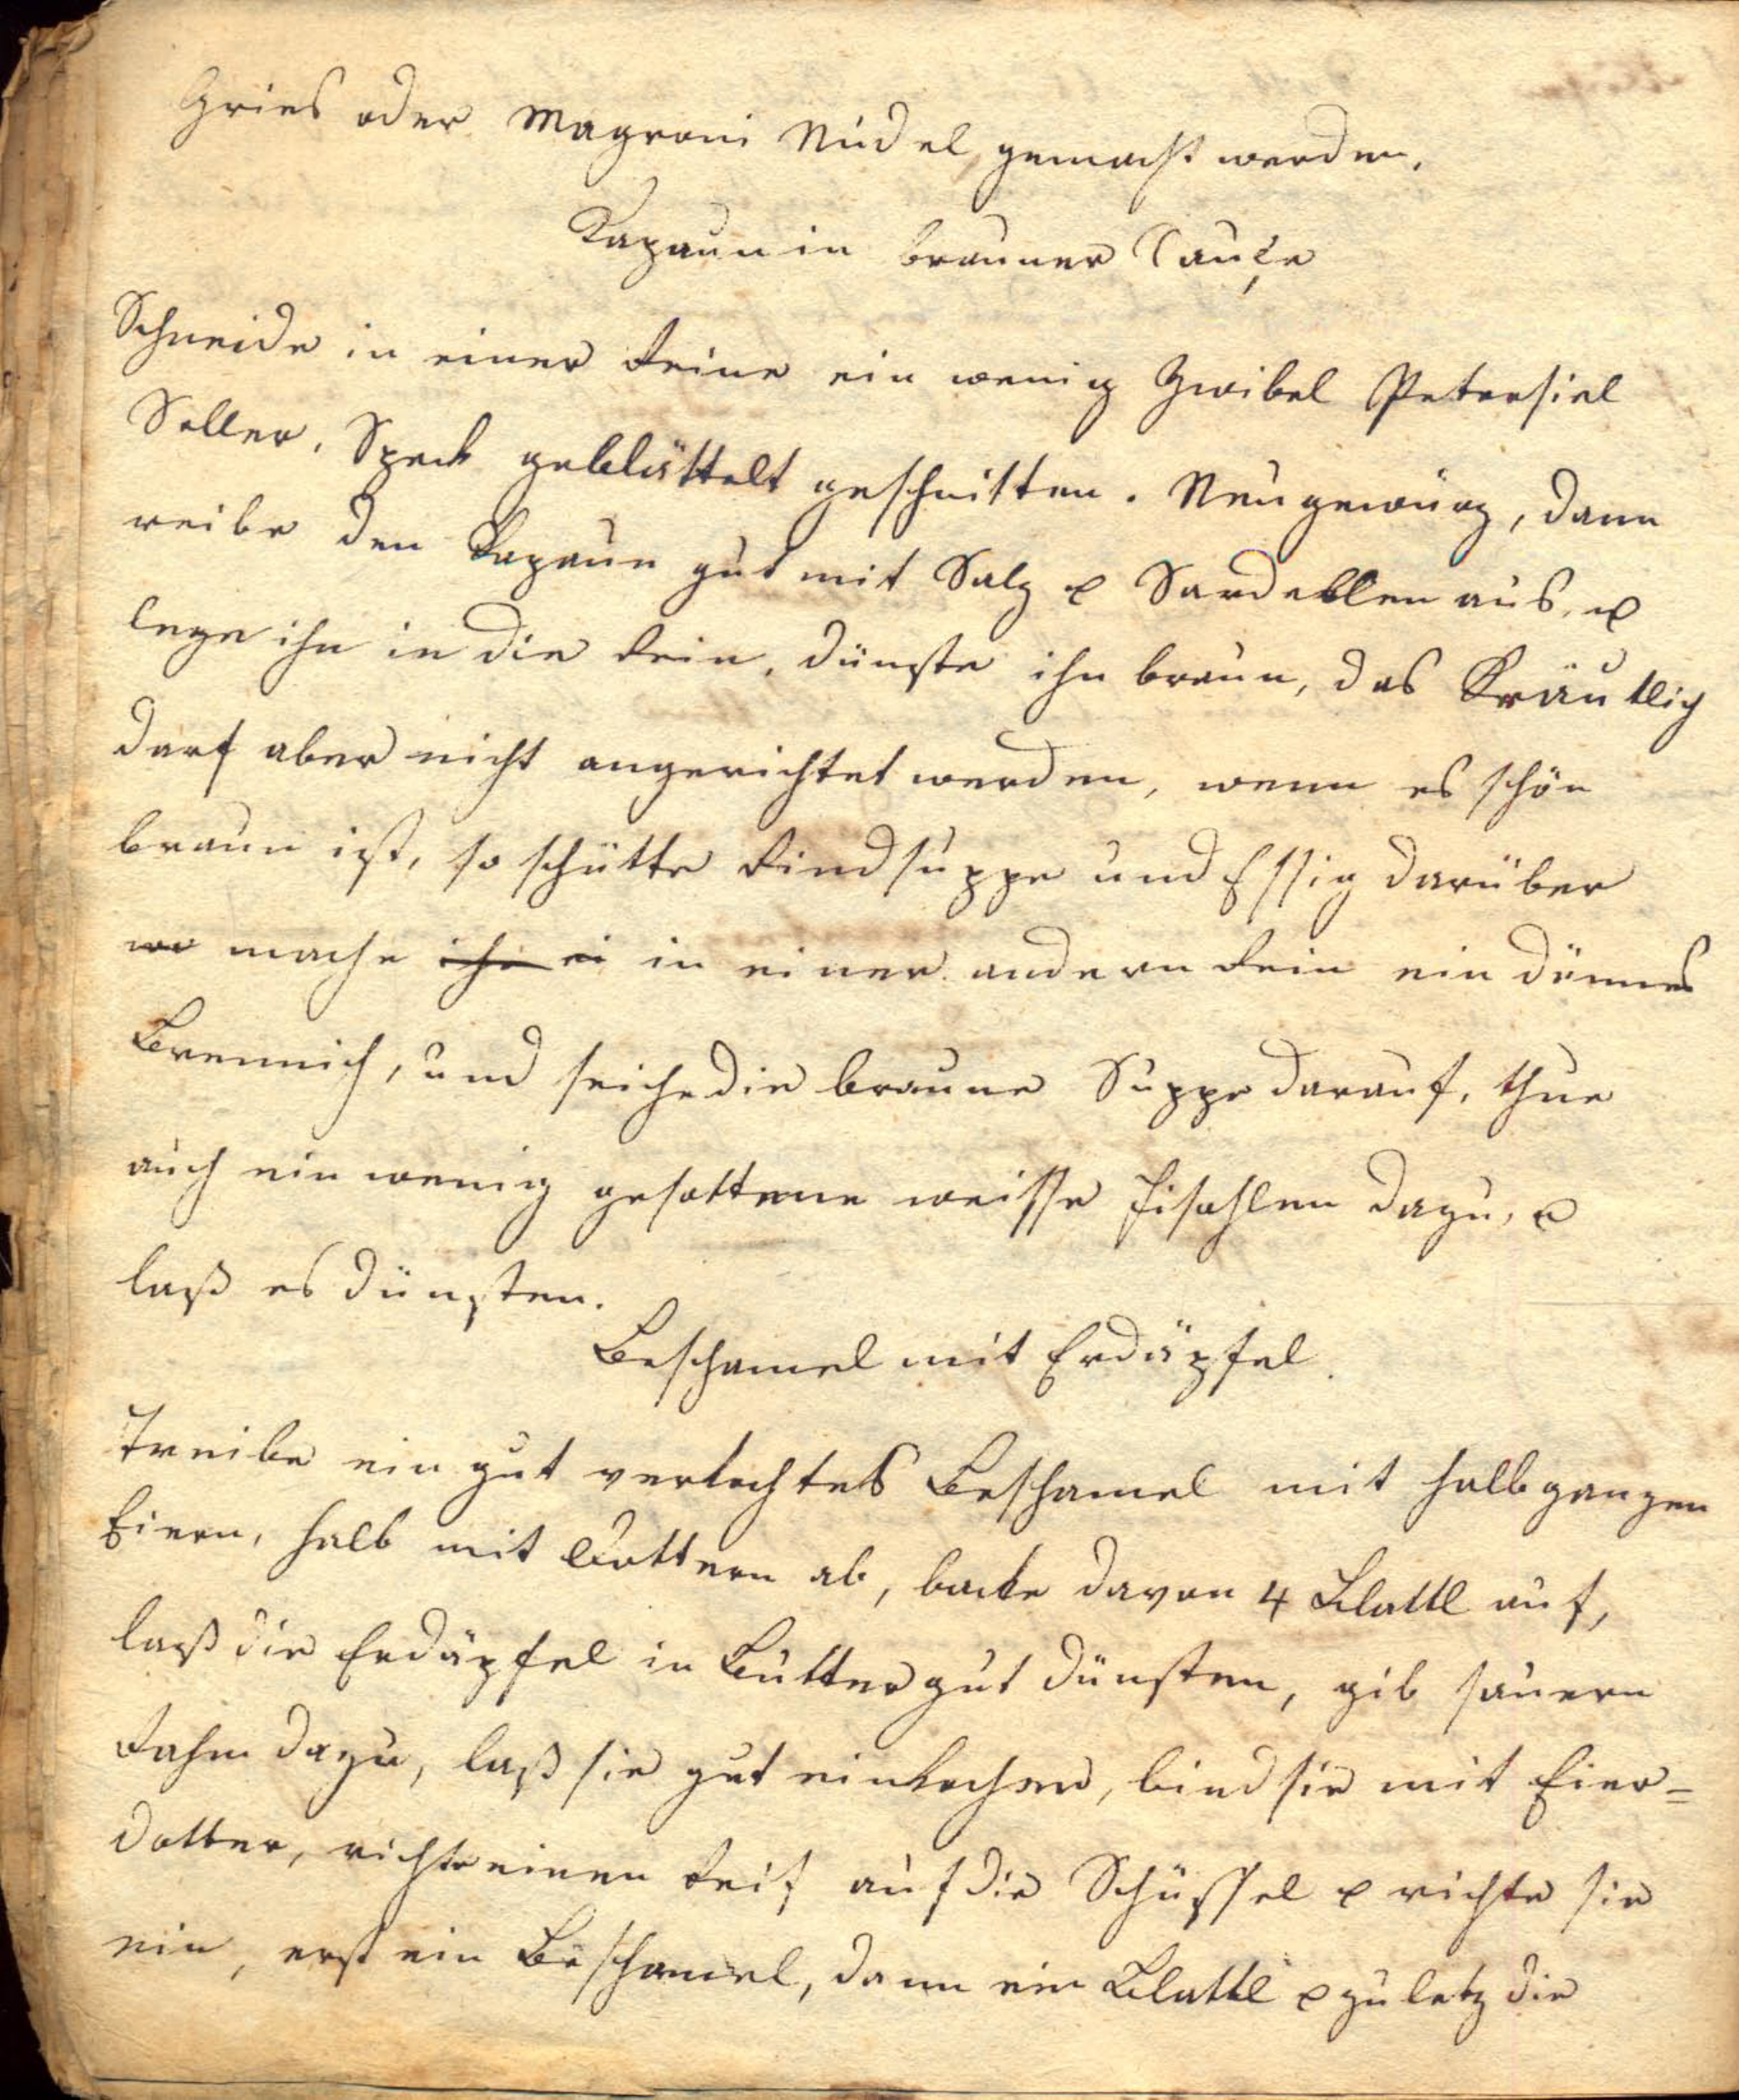 Gries oder Magroni Nudel gemacht werden.
Kapaun in brauner Sauçe
Schneide in einer Reine ein wenig Zwibel Petersiel
Seller, Speck geblättelt geschnitten. Neugewürz, dann
reibe den Kapaun gut mit Salz & Sardellen aus, &
lege ihn in die Rein, dünste ihn braun, das Kräutlig
darf aber nicht angerichtet werden, wenn es schön
braun ist, so schütte Rindsuppe und Essig darüber
mache in einer andern Rein ein dünnes
Brennich, und seiche die braune Suppe darauf, thue
auch ein wenig gesottene weisse Fisohlen dazu, &
laß es dünsten.
Beschamel mit Erdäpfel.
Treibe ein gut verkochtes Beschamel mit halb ganzen
Eiern, halb mit Dottern ab, backe davon 4 Blattl auf,
laß die Erdäpfel in Butter gut dünsten, gib sauern
Rahm dazu, laß sie gut einkochen, bind sie mit Eier=
dotter, richte einen Reif auf die Schüssel & richte sie
ein, erst ein Beschamel, dann ein Blattl & zuletz die